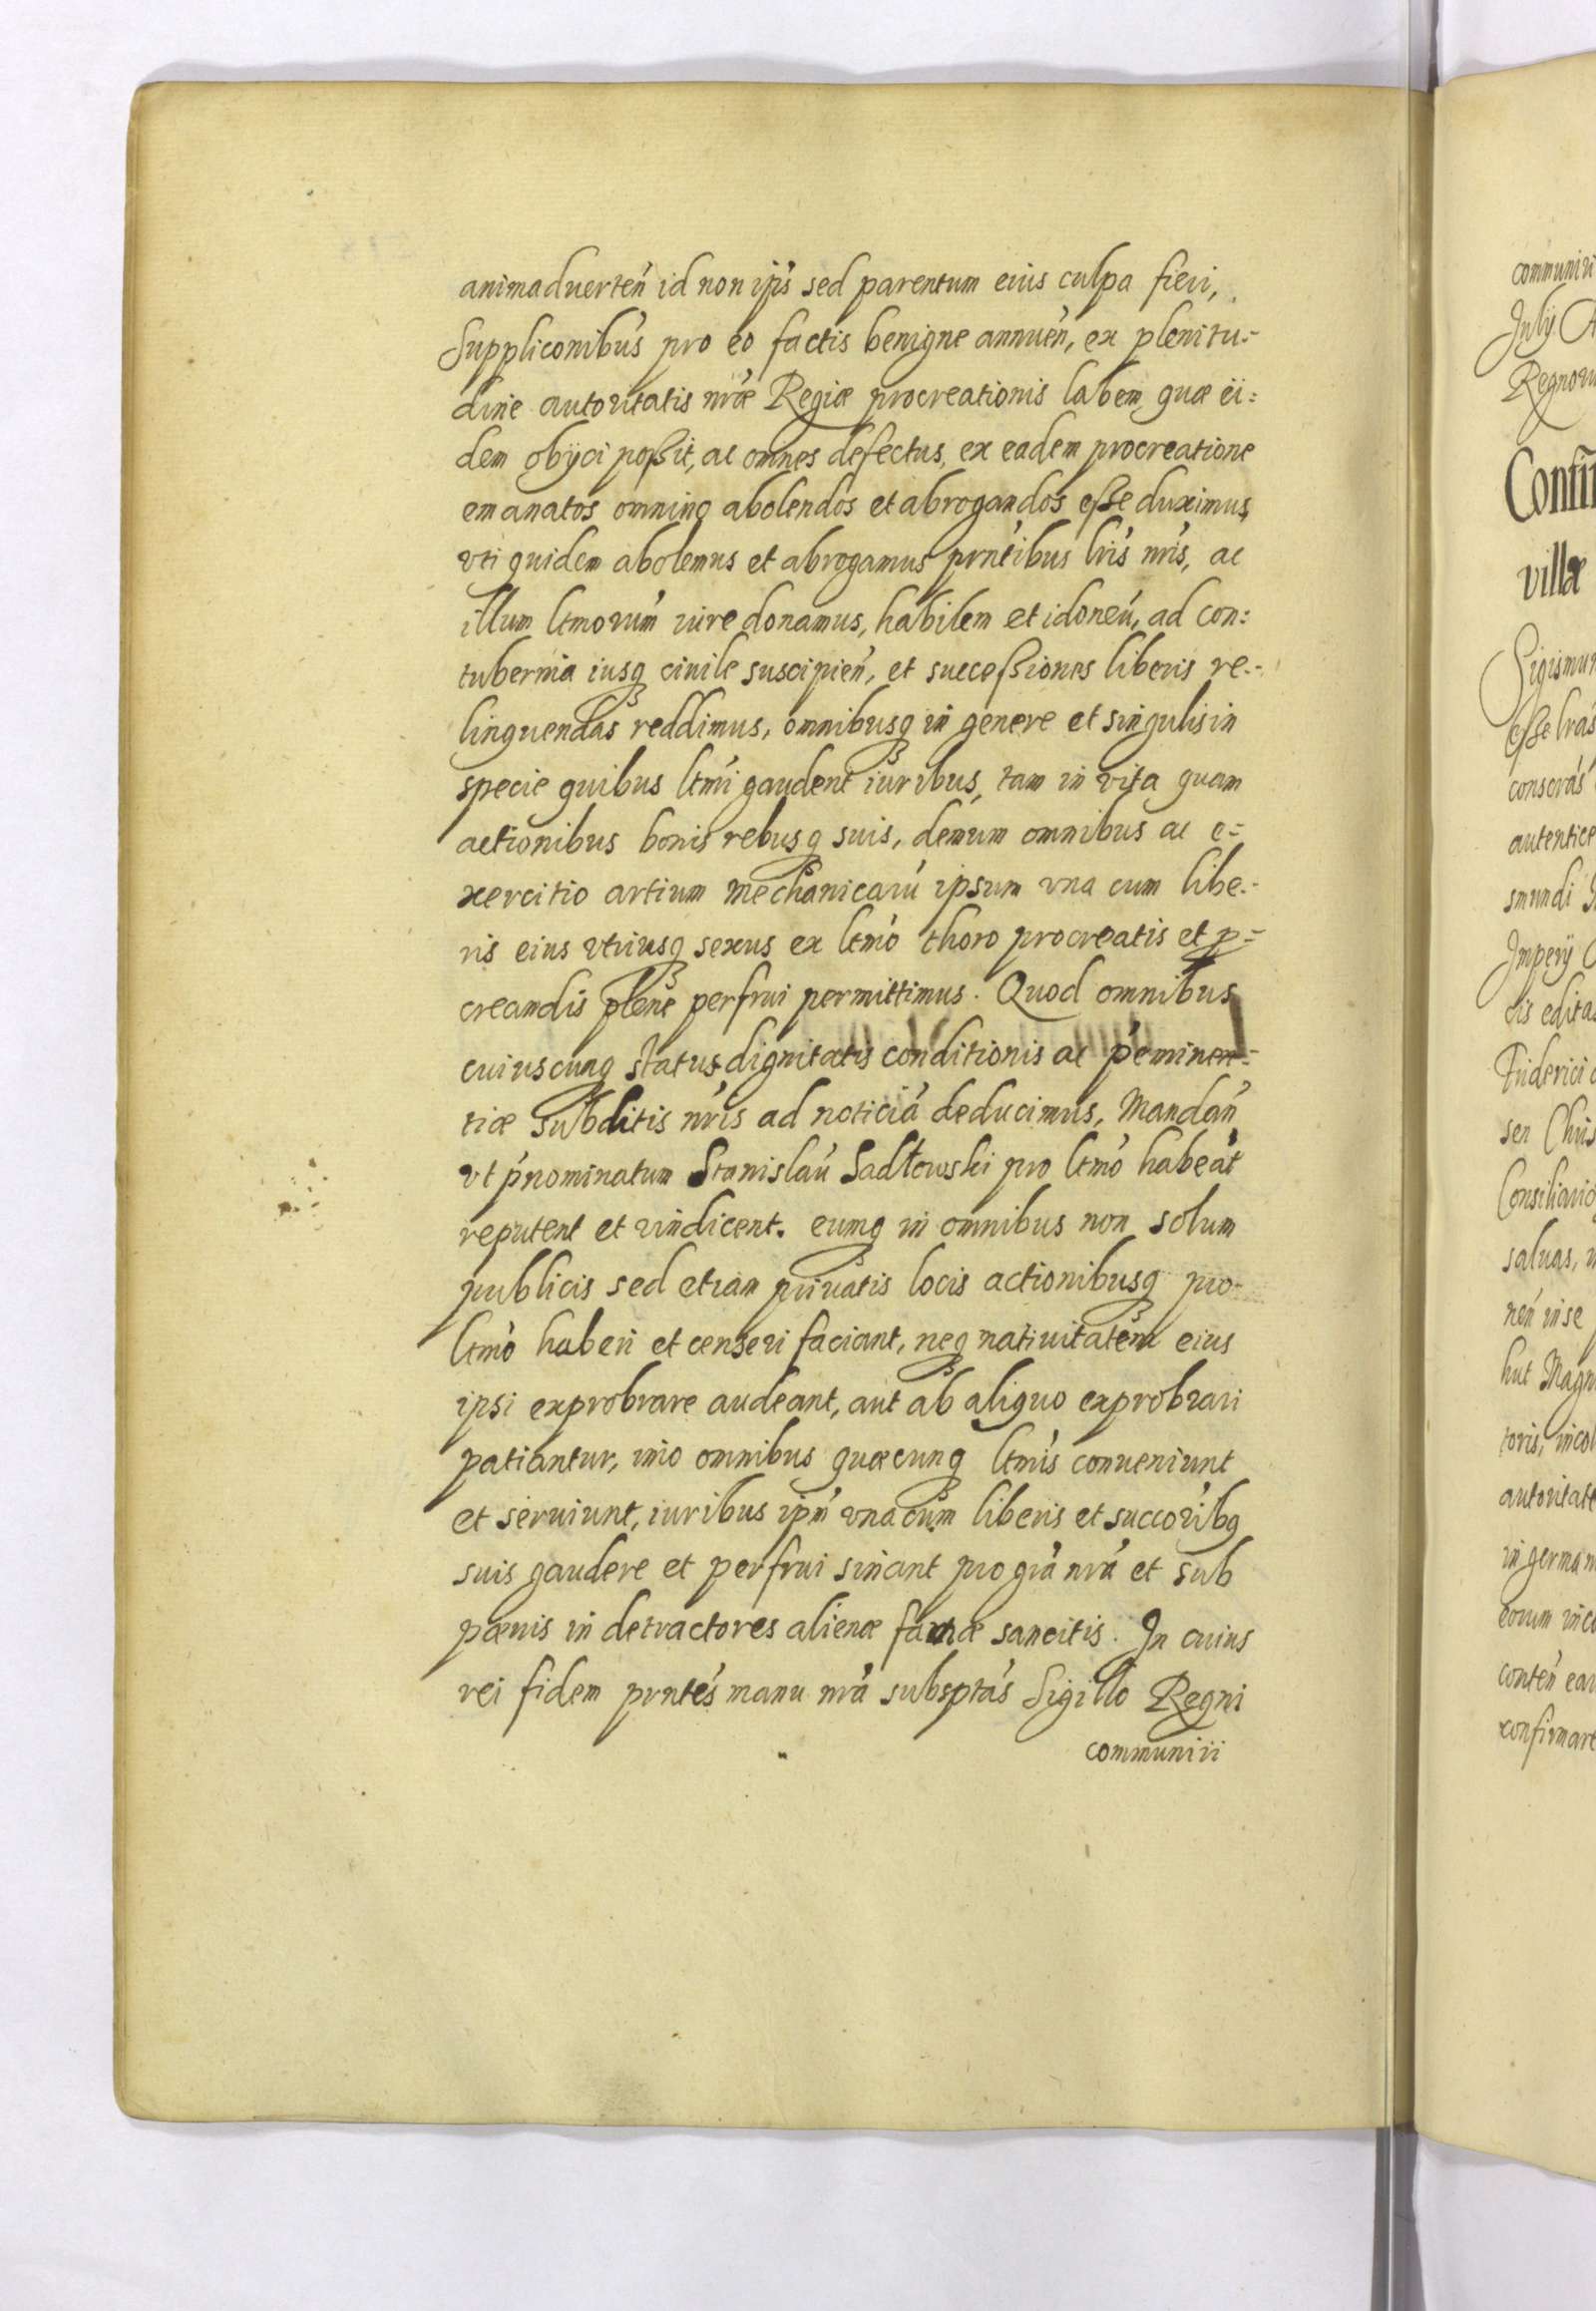 animaduerteń id non ip̃s sed parentum eius culpa fieri,
Suppliconibus pro eo factis benigne annueń, ex plenitu-
dine autoritatis nrae Regiæ procreationis labem quæ ei:
dem obijci poßit, ac omnes defectus, ex eadem procreatione
emanatos omnino abolendos et abrogandos eße duximus,
vti quidem abolemus et abrogamus prntibus lris nris, ac
illum ltmorum iure donamus, habilem et idoneú, ad con:
tubernia iusq ciuile suscipień, et succeßiones liberis re-
linquendas reddimus, omnibusq in genere et singulis in
specie quibus ltmi gaudent iuribus, tam in vita quam
actionibus bonis rebusq suis, demum omnibus ac e-
xercitio artium mechanicarú ipsum vna cum libe-
ris eius vtriusq sexus ex ltmo thoro procreatis et p-
creandis plene perfrui permittimus. Quod omnibus
cuiuscunq status dignitatis conditionis ac ṕeminen-
tiæ subditis nris ad noticiá deducimus, Mandań
vt ṕnominatum Stanislaú Sadłowski pro ltmo habeát
reputent et vindicent. eumq in omnibus non solum
publicis sed etiam priuatis locis actionibusq pro
ltmo haberi et censeri faciant, neq natiuitatem eius
ipsi exprobrare audeant, aut ab aliquo exprobrari
patiantur, imo omnibus quæcunq ltmis conueniunt
et seruiunt, iuribus ipm vna cum liberis et succoribq
suis gaudere et perfrui sinant pro gra nra et sub
pœnis in detractores alienæ famæ sancitis. In cuius
rei fidem prntes manu nra subsptas Sigillo Regni
communiri
communiri
July
Regnoru
villæ
Sigismun
eße lras
autentice
smundi
Imperij
cis editas
Friderici
seu Chris
Consiliario
saluas,
neń in se
hut Magn
toris, incol
autoritate
in german
eorum inco
conteń ear
confirmare